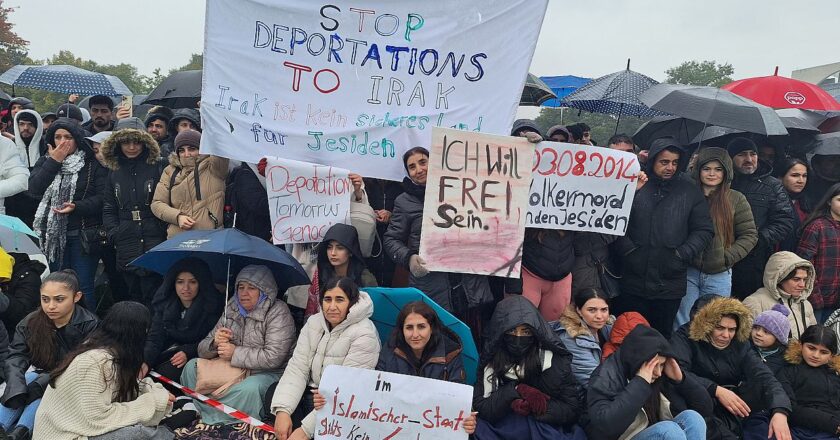 STOP
DEPORTATIONS
TO IRAK
Irak ist kein sicheres Land
für Jesiden
Depotation
Tomorrow
Genoc
ICH Will
FREI
Sein.
03.08.2014
Völkermord
an den Jesiden
im
islamischer-Staat
gibts Kein